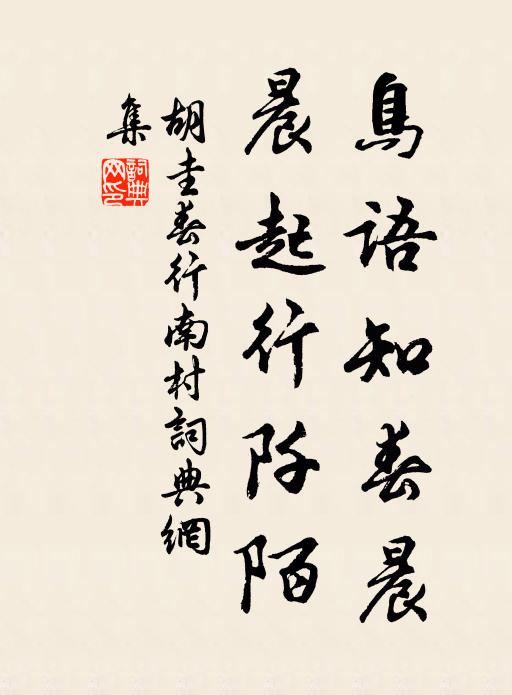 鳥語知春晨
晨起行阡陌
胡圭春行南村詞典網
集
詞典
网印